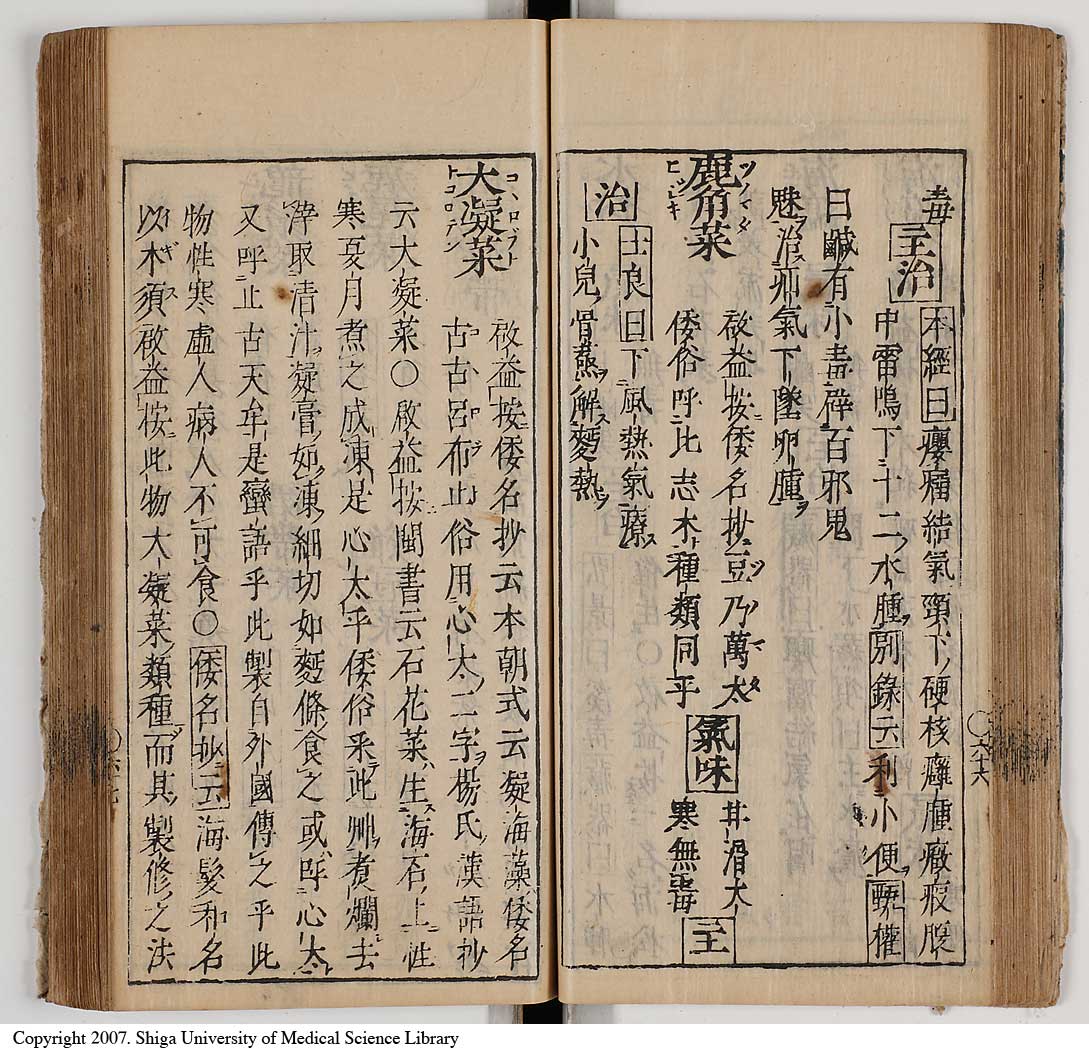 毒
主治 本經曰癭瘤結氣頸下硬核癰腫癥瘕腹
中雷鳴下十二水腫別錄云利小便甄權
曰鹹有小毒辟百邪鬼
魅治疝氣下墜卵腫
鹿角菜
ツノマタ
ヒジキ
啟益按倭名抄豆乃萬太
倭俗呼比志木種類同乎
氣味
甘滑大
寒無毒
主
治
士良曰下風熱氣療
小兒骨蒸解麪熱
六十六
大凝菜
コヽロブト
トコロテン
啟益按倭名抄云本朝式云凝海藻倭名
古古呂布止俗用心太二字楊氏漢語抄
云大凝菜〇啟益按閩書云石花菜生海石上性
寒夏月煮之成凍是心太乎倭俗采此州煮爛去
滓取清汁凝膏如凍細切如麪條食之或呼心太
又呼止古天牟是蠻語乎此製自外國傳之乎此
物性寒虛人病人不可食〇倭名抄云海髮和名
以木須啟益按此物大凝菜類種而其製修之法
六十七
Copyright 2007. Shiga University of Medical Science Library